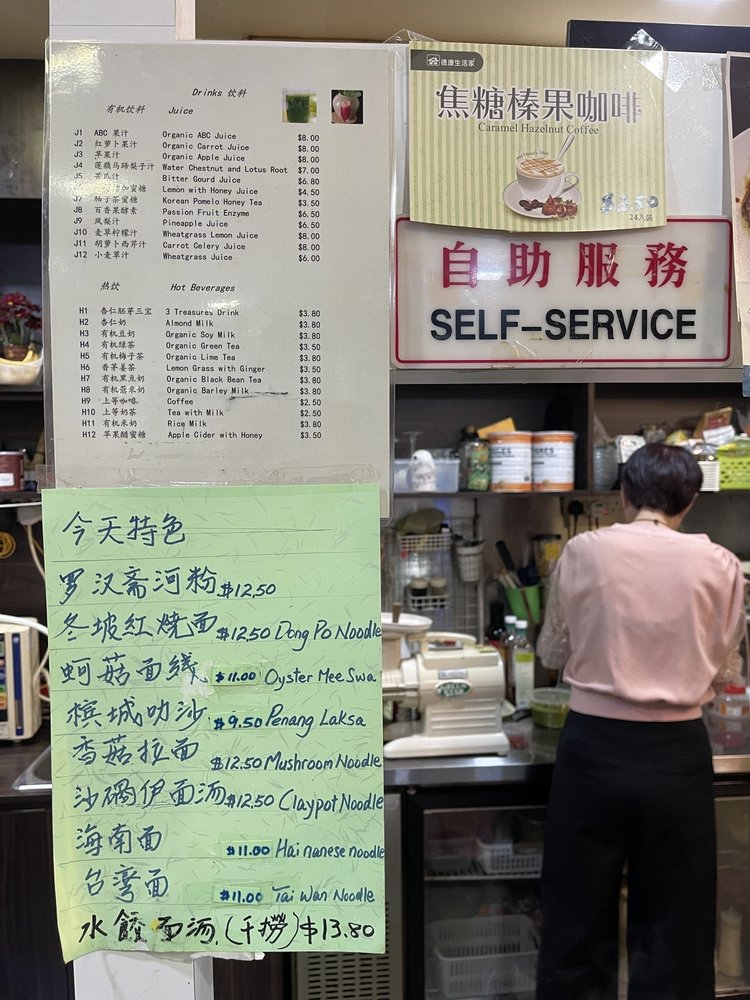 Drinks 饮料
有机饮料 Juice
J1 ABC 果汁 Organic ABC Juice $8.00
J2 红萝卜果汁 Organic Carrot Juice $8.00
J3 苹果汁 Organic Apple Juice $8.00
J4 莲藕马蹄梨子汁 Water Chestnut and Lotus Root $7.00
J5 苦瓜汁 Bitter Gourd Juice $6.80
加蜜糖 Lemon with Honey Juice $4.50
J7 柚子茶蜜 Korean Pomelo Honey Tea $3.50
J8 百香果酵素 Passion Fruit Enzyme $6.50
J9 凤梨汁 Pineapple Juice $6.50
J10 麦草柠檬汁 Wheatgrass Lemon Juice $8.00
J11 胡萝卜西芹汁 Carrot Celery Juice $8.00
J12 小麦草汁 Wheatgrass Juice $6.00
热饮 Hot Beverages
H1 杏仁胚芽三宝 3 Treasures Drink $3.80
H2 杏仁奶 Almond Milk $3.80
H3 有机豆奶 Organic Soy Milk $3.80
H4 有机绿茶 Organic Green Tea $3.50
H5 有机梅子茶 Organic Lime Tea $3.80
H6 香茅姜茶 Lemon Grass with Ginger $3.50
H7 有机黑豆奶 Organic Black Bean Tea $3.80
H8 有机薏米奶 Organic Barley Milk $3.80
H9 上等咖啡 Coffee $2.50
H10 上等奶茶 Tea with Milk $2.50
H11 有机米奶 Rice Milk $3.80
H12 苹果醋蜜糖 Apple Cider with Honey $3.50
德康生活家
焦糖榛果咖啡
Caramel Hazelnut Coffee
24入装
自助服務
SELF-SERVICE
今天特色
罗汉斋河粉 $12.50
冬坡红烧面 $12.50 Dong Po Noodle
蚵菇面线 $11.00 Oyster Mee Swa
槟城叻沙 $9.50 Penang Laksa
香菇拉面 $12.50 Mushroom Noodle
沙礀伊面汤 $12.50 Claypot Noodle
海南面 $11.00 Hainanese noodle
台湾面 $11.00 Taiwan Noodle
水餃面汤,(干撈) $13.80